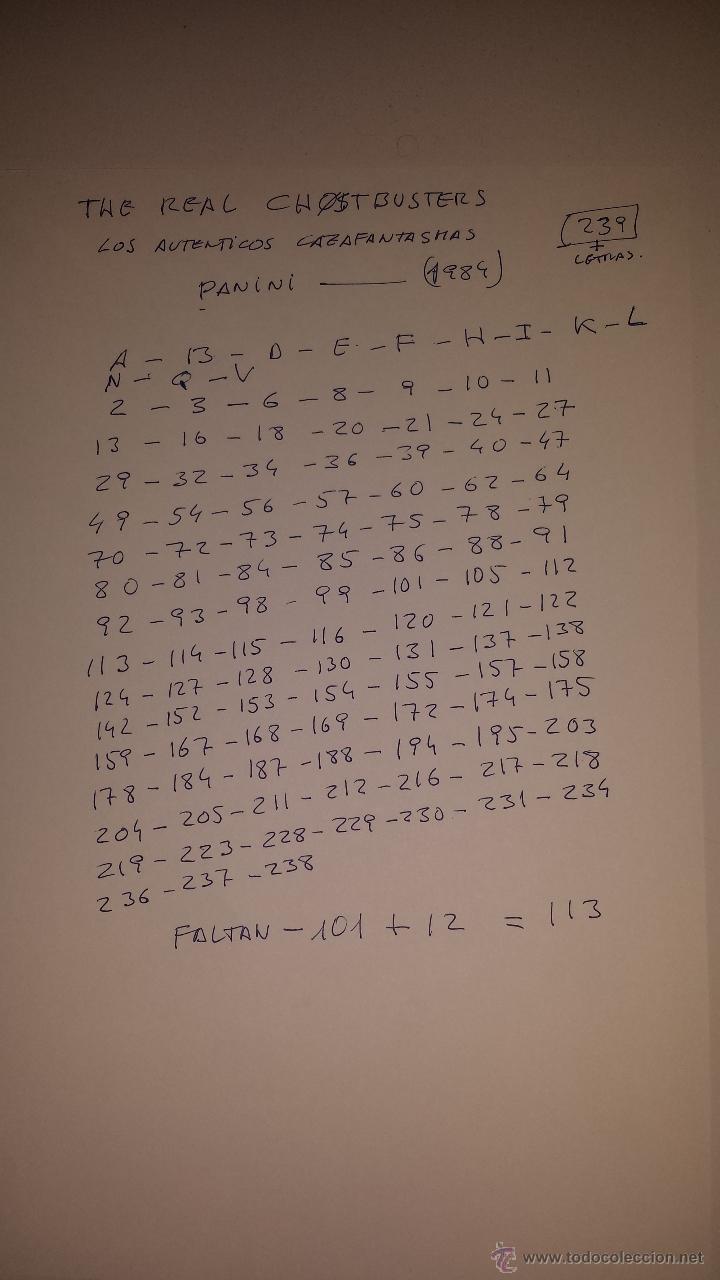 THE REAL CHOSTBUSTERS
LOS AUTENTICOS CAZAFANTASMAS
239
+
LETRAS.
PANINI —— (1984)
A - B - D - E - F - H - I - K - L
N - Q - V
2 - 3 - 6 - 8 - 9 - 10 - 11
13 - 16 - 18 - 20 - 21 - 24 - 27
29 - 32 - 34 - 36 - 39 - 40 - 47
49 - 54 - 56 - 57 - 60 - 62 - 64
70 - 72 - 73 - 74 - 75 - 78 - 79
80 - 81 - 84 - 85 - 86 - 88 - 91
92 - 93 - 98 - 99 - 101 - 105 - 112
113 - 114 - 115 - 116 - 120 - 121 - 122
124 - 127 - 128 - 130 - 131 - 137 - 138
142 - 152 - 153 - 154 - 155 - 157 - 158
159 - 167 - 168 - 169 - 172 - 174 - 175
178 - 184 - 187 - 188 - 194 - 195 - 203
204 - 205 - 211 - 212 - 216 - 217 - 218
219 - 223 - 228 - 229 - 230 - 231 - 234
236 - 237 - 238
FALTAN - 101 + 12 = 113
www.todocoleccion.net